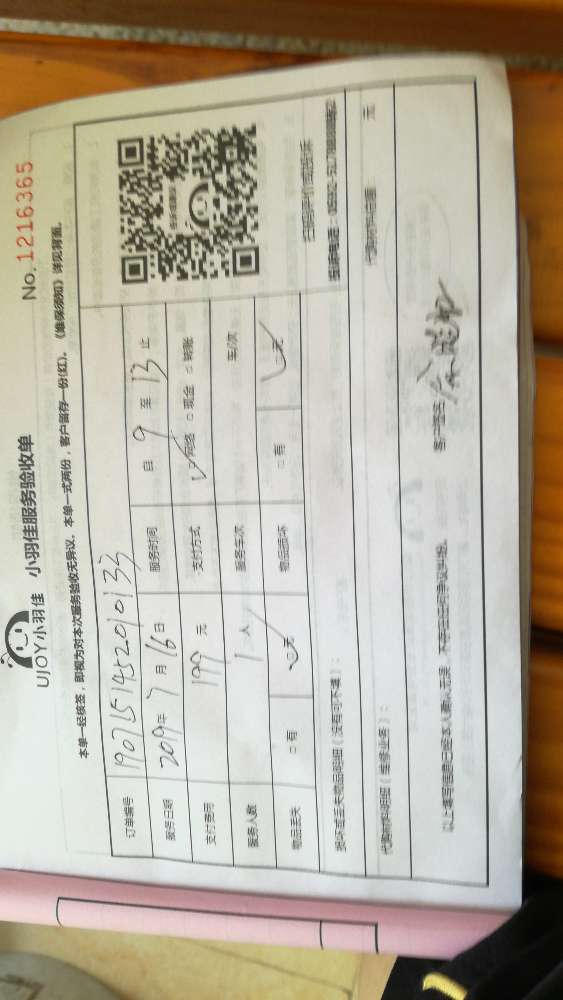 UJOY小羽佳 小羽佳服务验收单
No.1216365
本单一经核签，即视为对本次服务验收无异议。本单一式两份，客户留存一份(红)。《维保须知》详见背面。
订单编号 190715145201033
服务日期 2019年 7月 16日 服务时间 自 9 至 13 止
支付费用 199 元 支付方式 □网络 □现金 □转账
服务人数 1 人 服务车次 车/次
物品丢失 □有 □无 物品损坏 □有 □无
扫码评价或投诉
投诉电话：
损坏或丢失物品明细（没有可不填）：
代购材料明细（维修业务）： 元
以上填写信息已经本人确认无误，不存在任何争议纠纷。 客户签名：